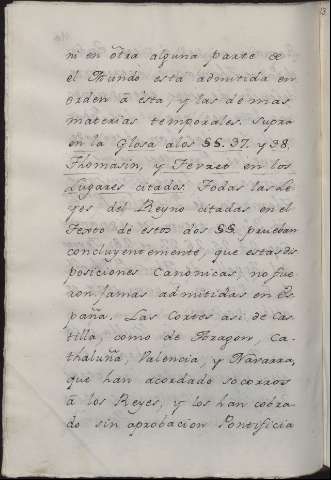 13
ni en òtra alguna parte de
el Mundo està admitida en
orden à èsta, y las demas
materias temporales. Supra
en la Glosa a los §§. 37. y 38.
Thomasin, y Ferret en los
Lugares citados. Todas las Le
yes del Reyno citadas en el
Texto de èstos dos §§. prueban
concluyentemente, que estas dis
posiciones Canonicas, no fue
ron jamàs admitidas en Es
paña. Las Cortes asi de Cas
tilla, como de Aragon, Ca-
thaluña, Valencia, y Navarra,
que han acordado socorros
à los Reyes, y los han cobra-
do sin aprobacion Pontificia